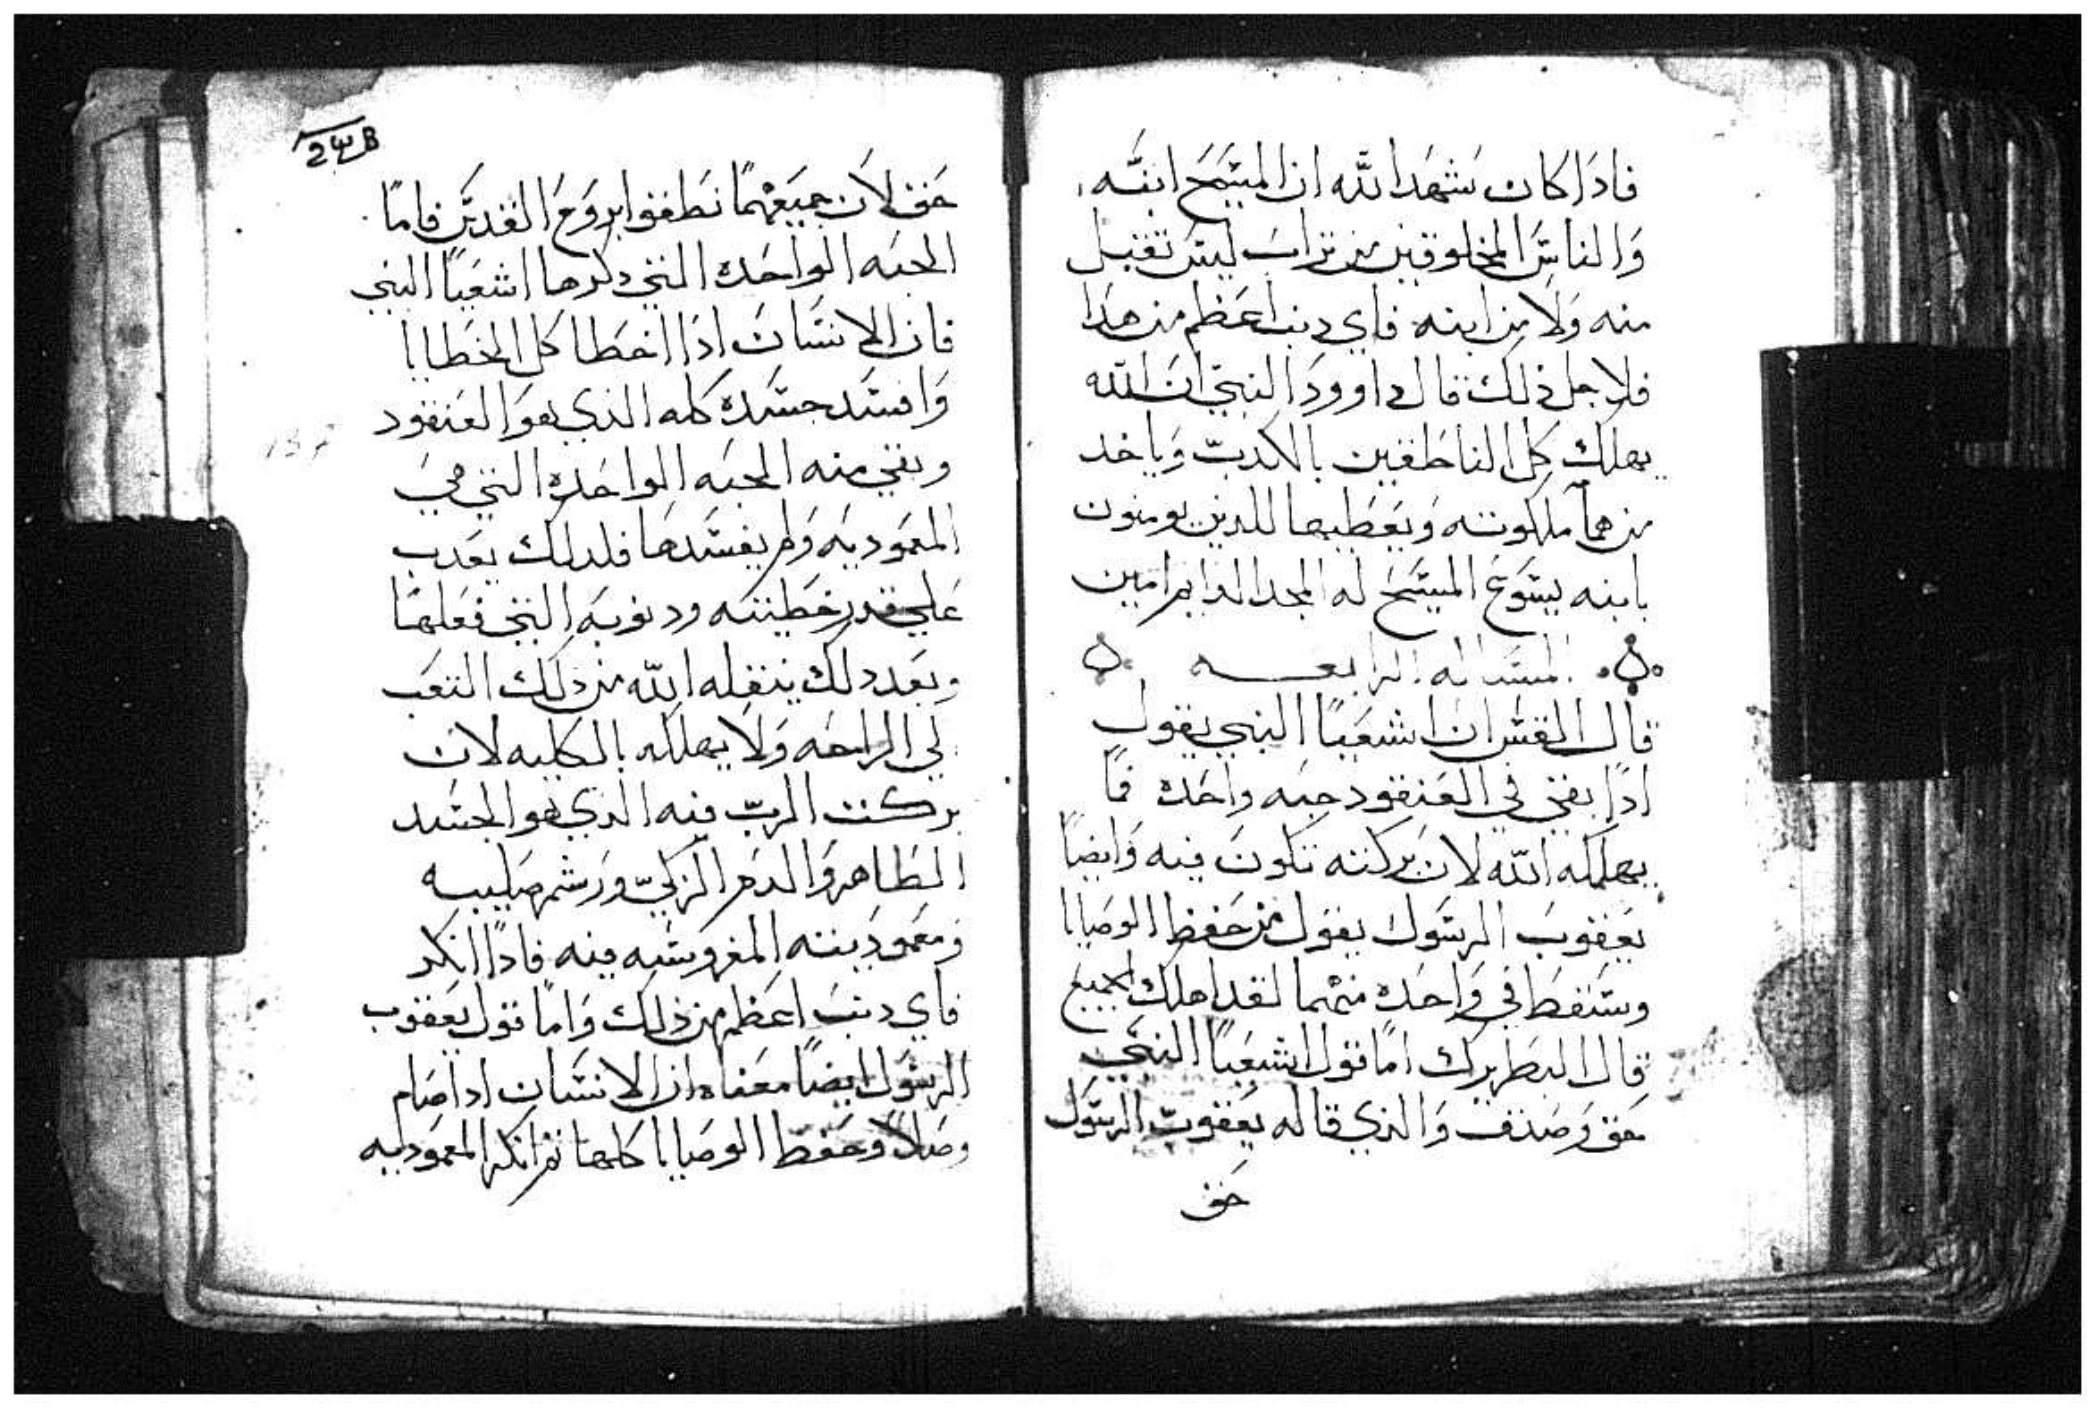 فاذا كان شهد الله ان المسيح ابنه
والناس المخلوقين من تراب ليس تقبل
منه ولا من ابنه فاي دنب اعظم من هدا
فلاجل ذلك قال داوود النبي ان الله
يهلك كل الناطقين بالكدب وياخد
منهما ملكوته ويعطيها للدين يومنون
بابنه يسوع المسيح له المجد الدايم امين
المساله الرابعه
قال القس ان اشعيا النبي يقول
اذا بقي في العنقود حبه واحده فما
يهلكه الله لان بركته تكون فيه وايضا
يعقوب الرسول يقول من حفظ الوصايا
وسقط في واحده منهما لقد اهلك الجميع
قال البطريرك اما قول اشعيا النبي
حق وصدق والذي قاله يعقوب الرسول
حق
حق لان جميعهما نطقوا بروح القدس فاما
الحبه الواحده التي دكرها اشعيا النبي
فان الانسان اذا اخطا كل الخطايا
وافسد جسده كله الذي هو العنقود
وبقي منه الحبه الواحده التي هي
المعموديه ولم يفسدها فلدلك يعدب
علي قدر خطيته ودنوبه التي فعلها
وبعد دلك ينقله الله من ذلك التعب
لي الراحه ولا يهلكه بالكليه لان
بركت الرب فيه الذي هو الجسد
الطاهر والدم الزكي ورشم صليبه
ومعموديته المغروسه فيه فادا انكر
فاي دنب اعظم من ذلك واما قول يعقوب
الرسول ايضا معناه ان الانسان ادا صام
وصلا وحفظ الوصايا كلها ثم انكر المعموديه